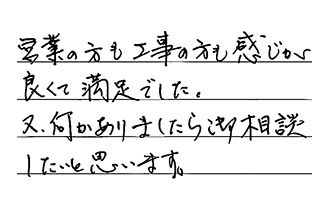 営業の方も工事の方も感じが
良くて満足でした。
又、何かありましたら御相談
したいと思います。